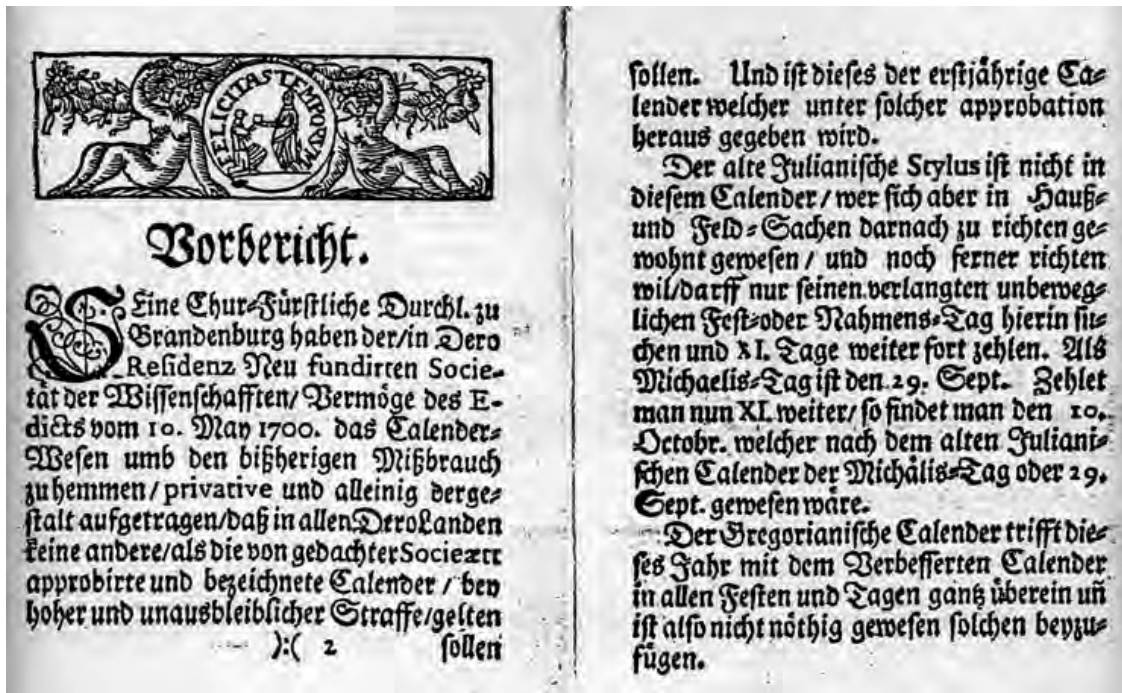 FELICITAS TEMPORUM
Vorbericht.
SEine Chur-Fürstliche Durchl. zu
Brandenburg haben der/in Dero
Residenz Neu fundirten Socie-
tät der Wissenschafften/ Vermöge des E-
dicts vom 10. May 1700. das Calender-
Wesen umb den bißherigen Mißbrauch
zu hemmen/ privative und alleinig derge-
stalt aufgetragen/daß in allen Dero Landen
keine andere/als die von gedachter Societætt
approbirte und bezeichnete Calender / bey
hoher und unausbleiblicher Straffe/gelten
):( 2 sollen
sollen. Und ist dieses der erstjährige Ca-
lender welcher unter solcher approbation
heraus gegeben wird.
Der alte Julianische Stylus ist nicht in
diesem Calender/ wer sich aber in Hauß-
und Feld-Sachen darnach zu richten ge-
wohnt gewesen / und noch ferner richten
wil/darff nur seinen verlangten unbeweg-
lichen Fest-oder Nahmens-Tag hierin su-
chen und XI. Tage weiter fort zehlen. Als
Michaelis-Tag ist den 29. Sept. Zehlet
man nun XI. weiter/ so findet man den 10.
Octobr. welcher nach dem alten Juliani-
schen Calender der Michälis-Tag oder 29.
Sept. gewesen wäre.
Der Gregorianische Calender trifft die-
ses Jahr mit dem Verbesserten Calender
in allen Festen und Tagen gantz überein uñ
ist also nicht nöthig gewesen solchen beyzu-
fügen.